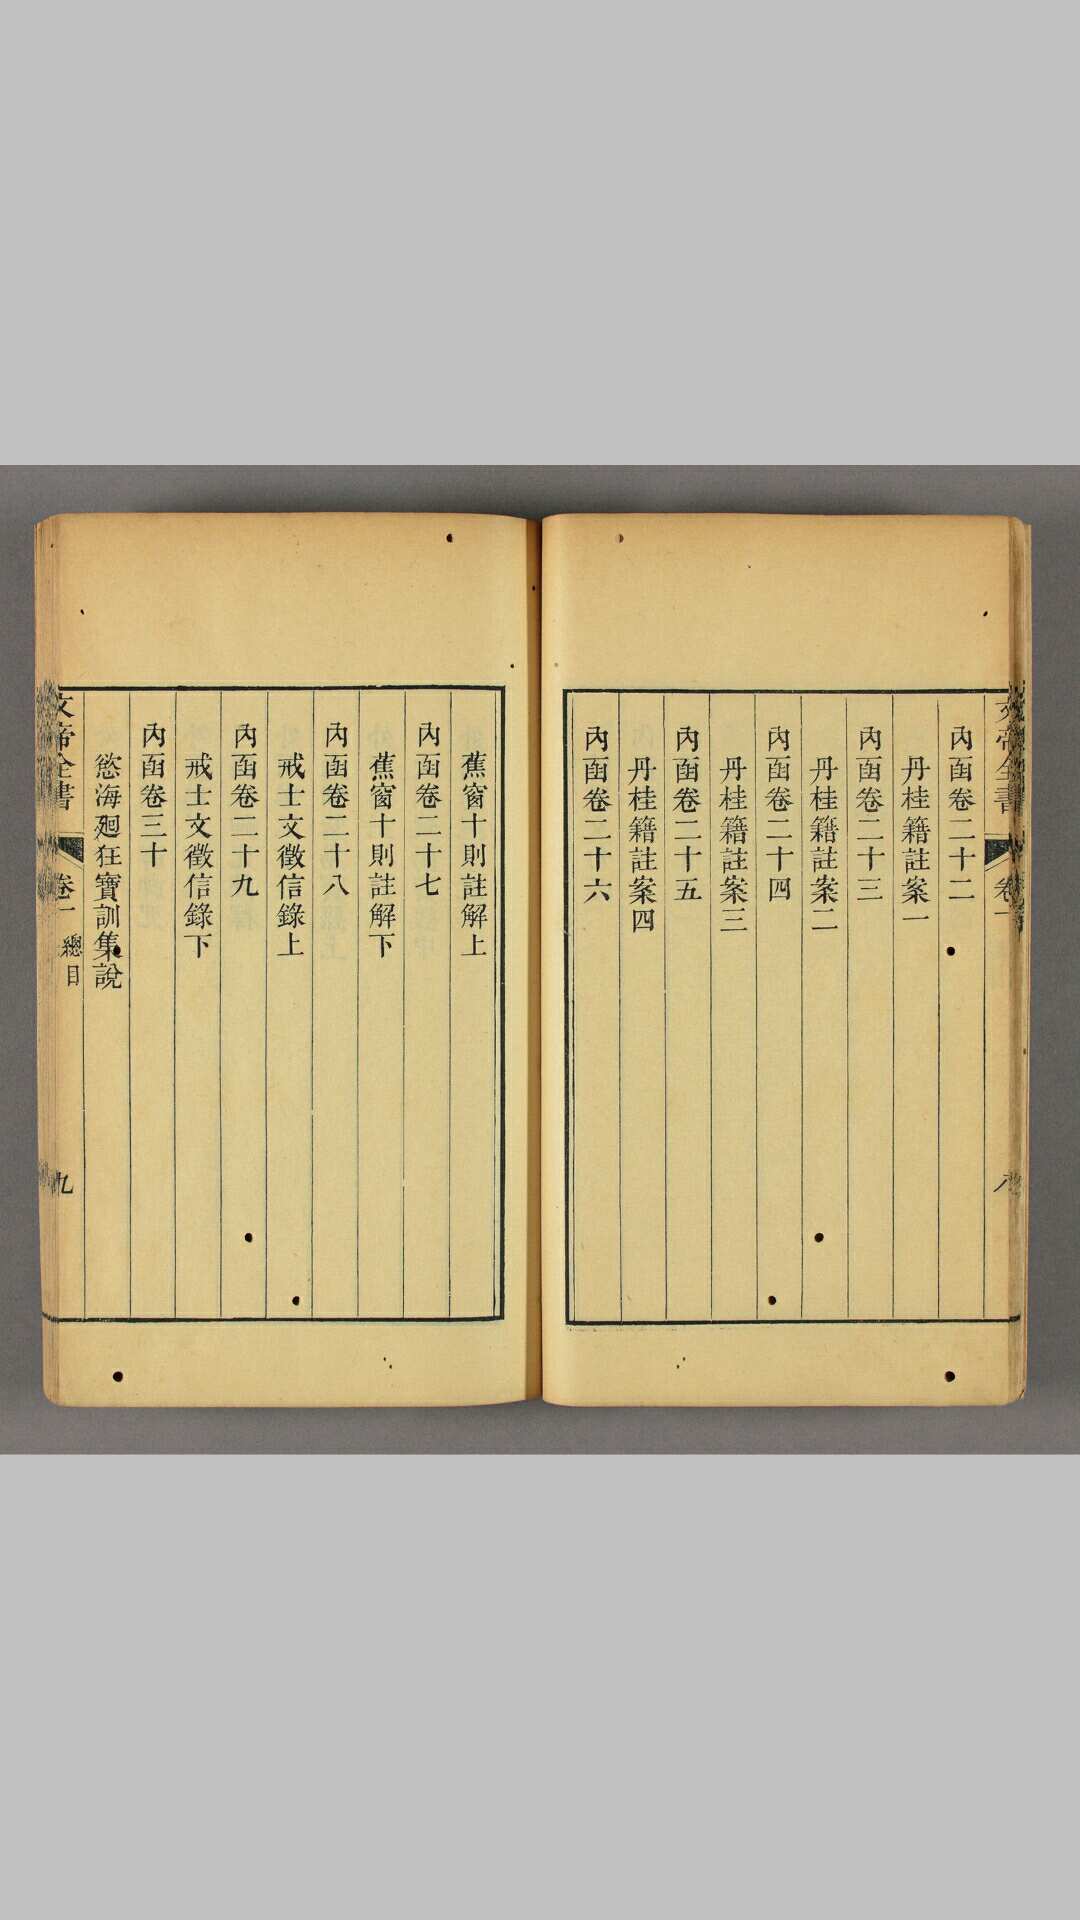 文帝全書
卷一
八
內函卷二十二
丹桂籍註案一
內函卷二十三
丹桂籍註案二
內函卷二十四
丹桂籍註案三
內函卷二十五
丹桂籍註案四
內函卷二十六
蕉窗十則註解上
內函卷二十七
蕉窗十則註解下
內函卷二十八
戒士文徵信錄上
內函卷二十九
戒士文徵信錄下
內函卷三十
慾海廻狂寶訓集說
文帝全書
卷一
總目
九